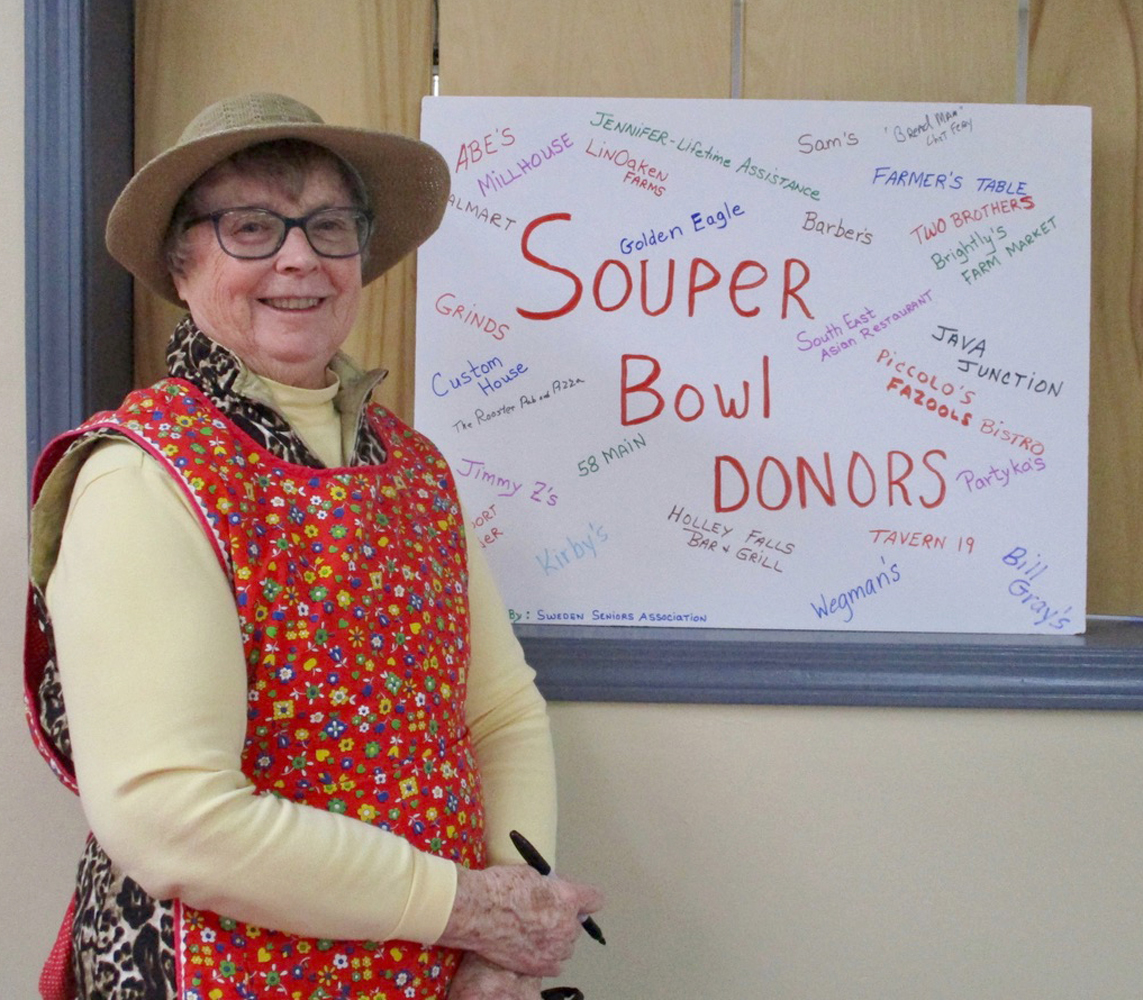 ABE'S
MILLHOUSE
JENNIFER-Lifetime Assistance
LinOaken
FARMS
Sam's
"Bread Man"
FARMER'S TABLE
ALMART
Golden Eagle
Barber's
TWO BROTHERS
Brightly's
FARM MARKET
SOUPER
Bowl
DONORS
GRINDS
South East
Asian Restaurant
JAVA
JUNCTION
Custom
House
The Rooster Pub and Pizza
Piccolo's
FAZOOLS BISTRO
58 MAIN
Jimmy Z's
Partyka's
ORT
ER
Kirby's
HOLLEY FALLS
BAR & GRILL
TAVERN 19
Wegman's
Bill
Gray's
By: SWEDEN SENIORS ASSOCIATION